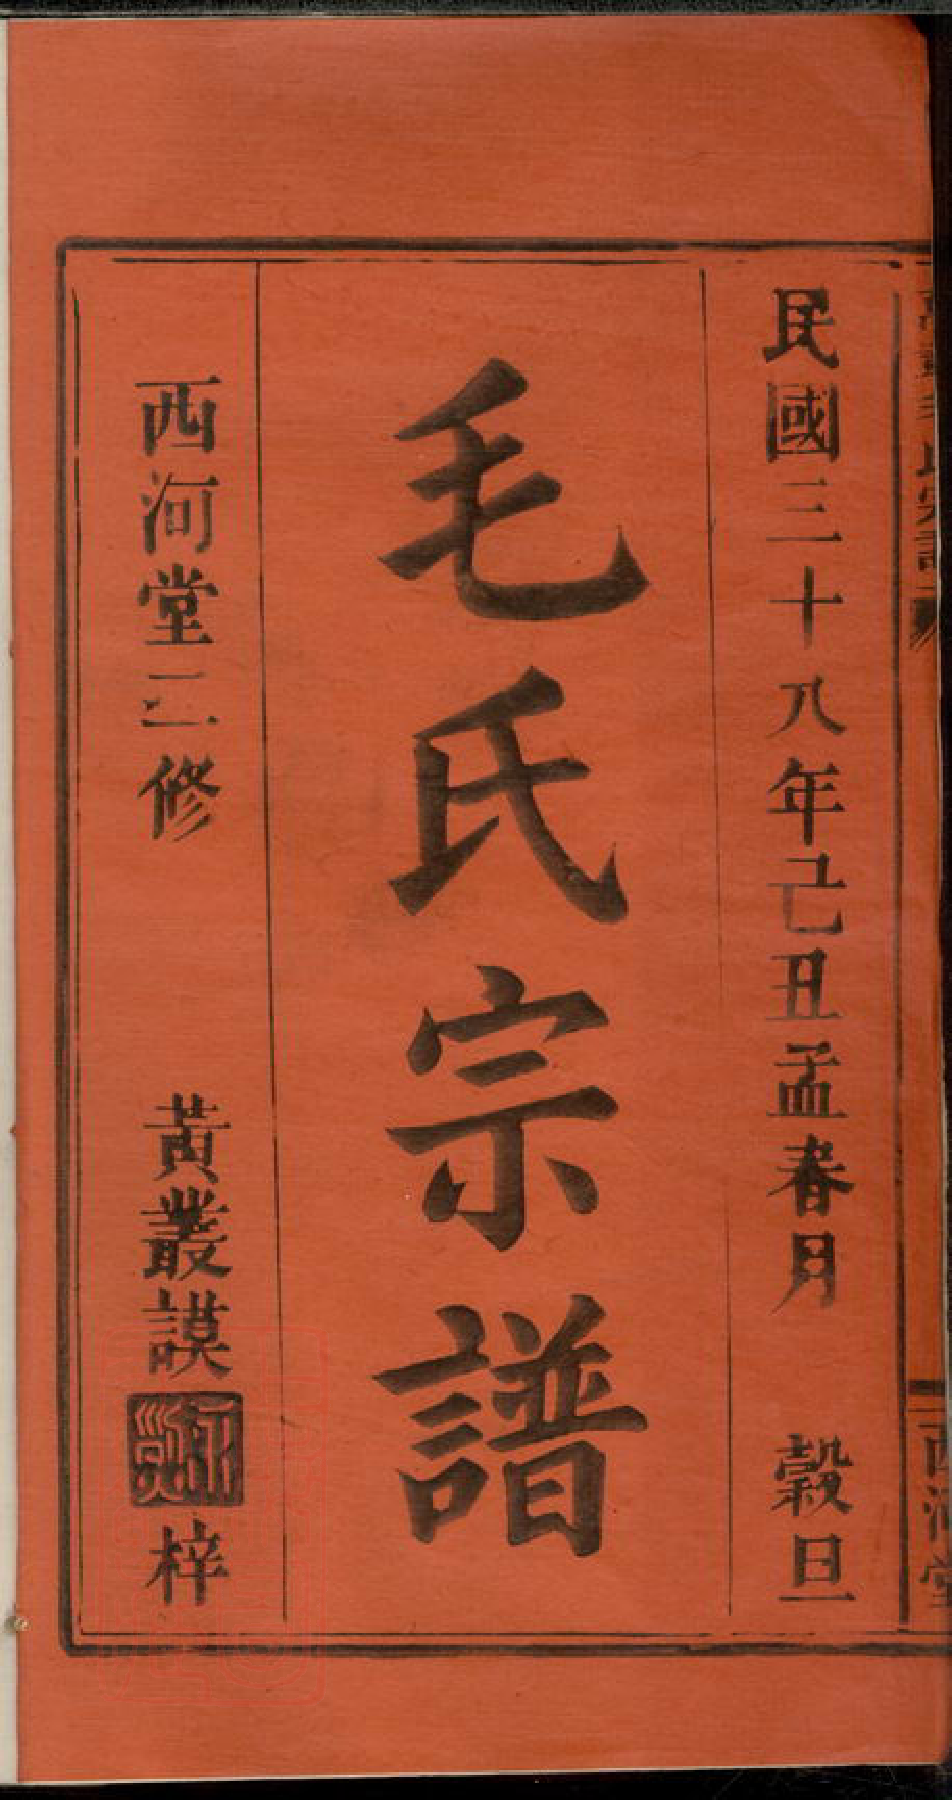 民國三十八年己丑孟春月 穀旦
毛氏宗譜
西河堂三修 黃叢謨 梓
西河堂